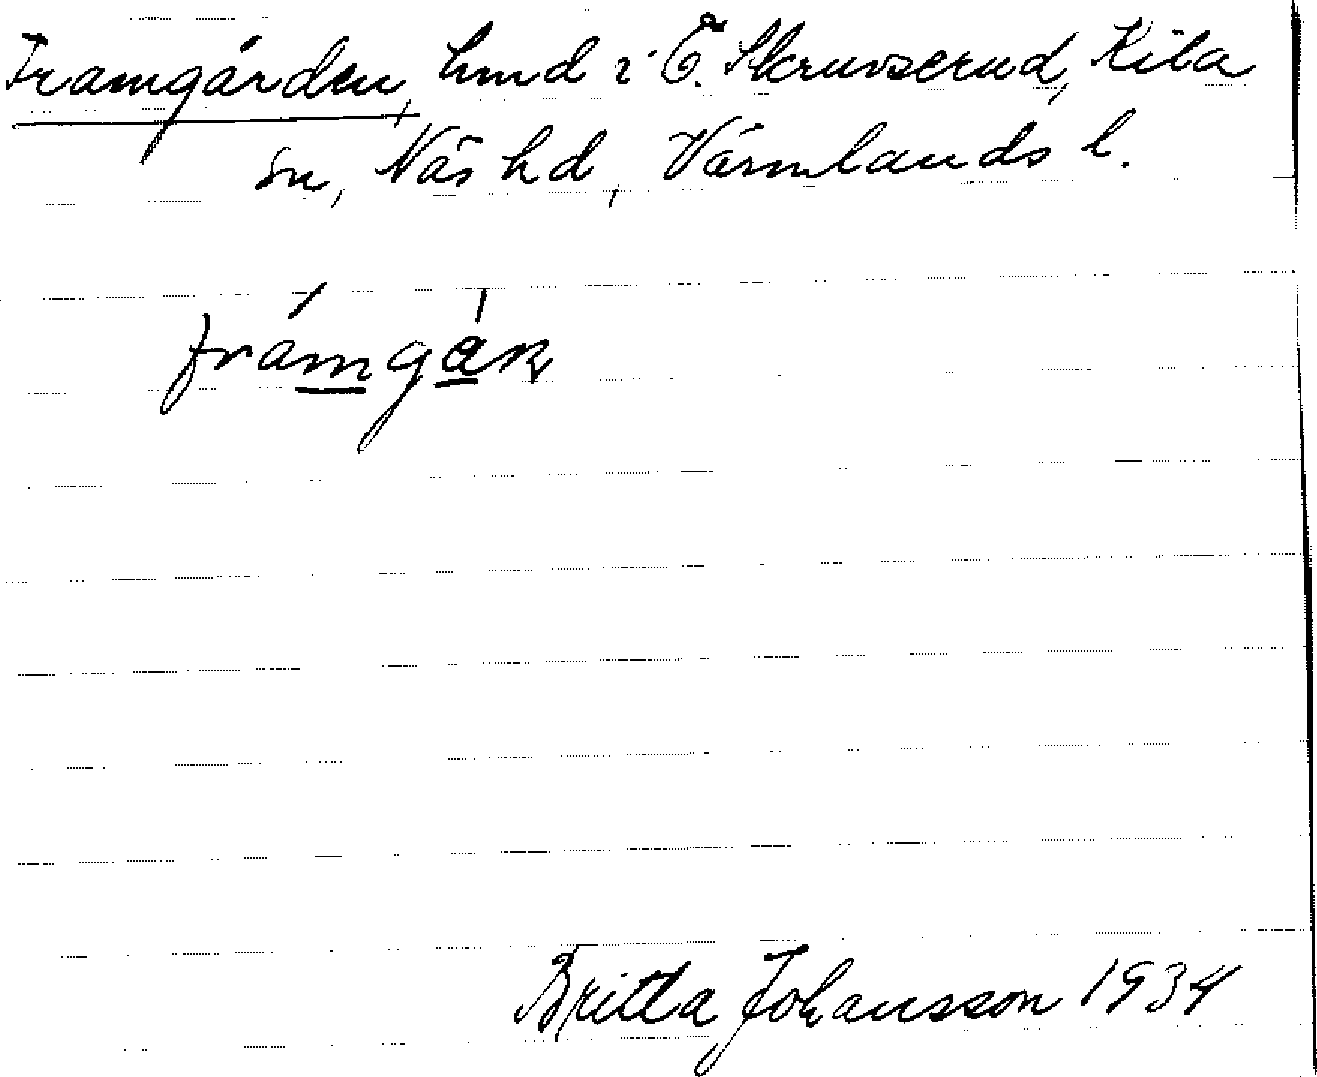 Framgården, hmd i Ö. Skruvserud, Kila
sn, Näs hd, Värmlands l.
framgáɳ
Britta Johansson 1934